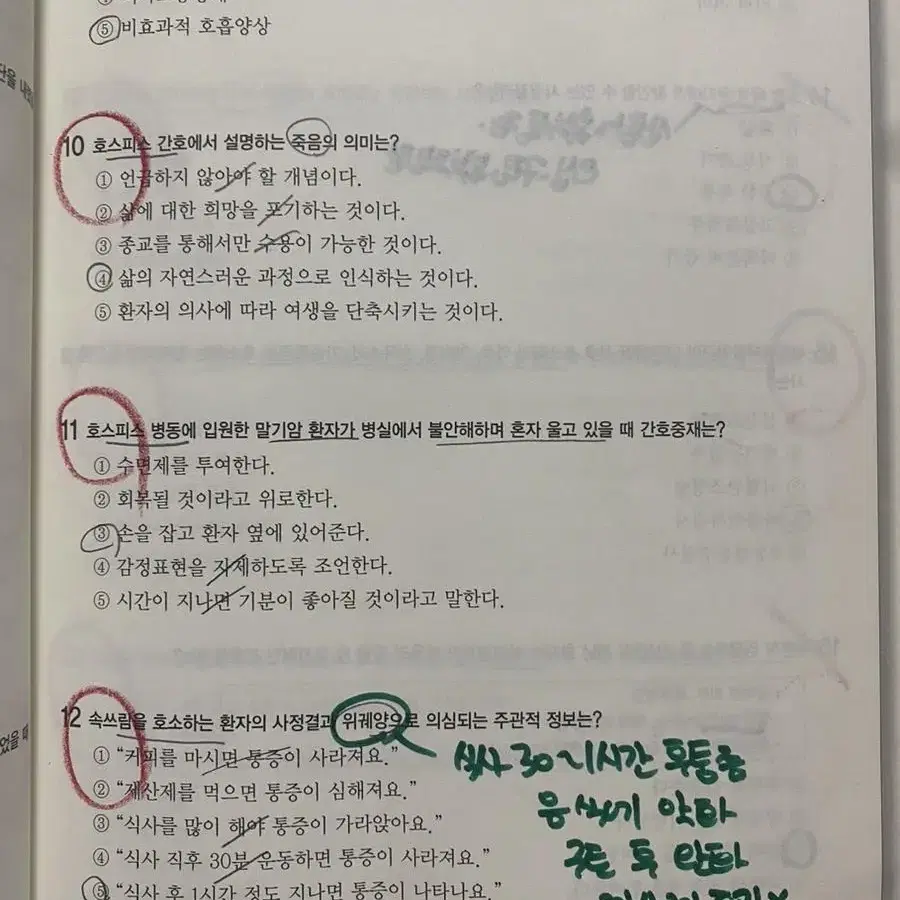 ⑤ 비효과적 호흡양상
10 호스피스 간호에서 설명하는 죽음의 의미는?
① 언급하지 않아야 할 개념이다.
② 삶에 대한 희망을 포기하는 것이다.
③ 종교를 통해서만 수용이 가능한 것이다.
④ 삶의 자연스러운 과정으로 인식하는 것이다.
⑤ 환자의 의사에 따라 여생을 단축시키는 것이다.
11 호스피스 병동에 입원한 말기암 환자가 병실에서 불안해하며 혼자 울고 있을 때 간호중재는?
① 수면제를 투여한다.
② 회복될 것이라고 위로한다.
③ 손을 잡고 환자 옆에 있어준다.
④ 감정표현을 자제하도록 조언한다.
⑤ 시간이 지나면 기분이 좋아질 것이라고 말한다.
12 속쓰림을 호소하는 환자의 사정결과 위궤양으로 의심되는 주관적 정보는?
① “커피를 마시면 통증이 사라져요.”
식사 30~1시간 후 통증
② “제산제를 먹으면 통증이 심해져요.”
③ “식사를 많이 해야 통증이 가라앉아요.”
④ “식사 직후 30분 운동하면 통증이 사라져요.”
구토 후
⑤ “식사 후 1시간 정도 지나면 통증이 나타나요.”